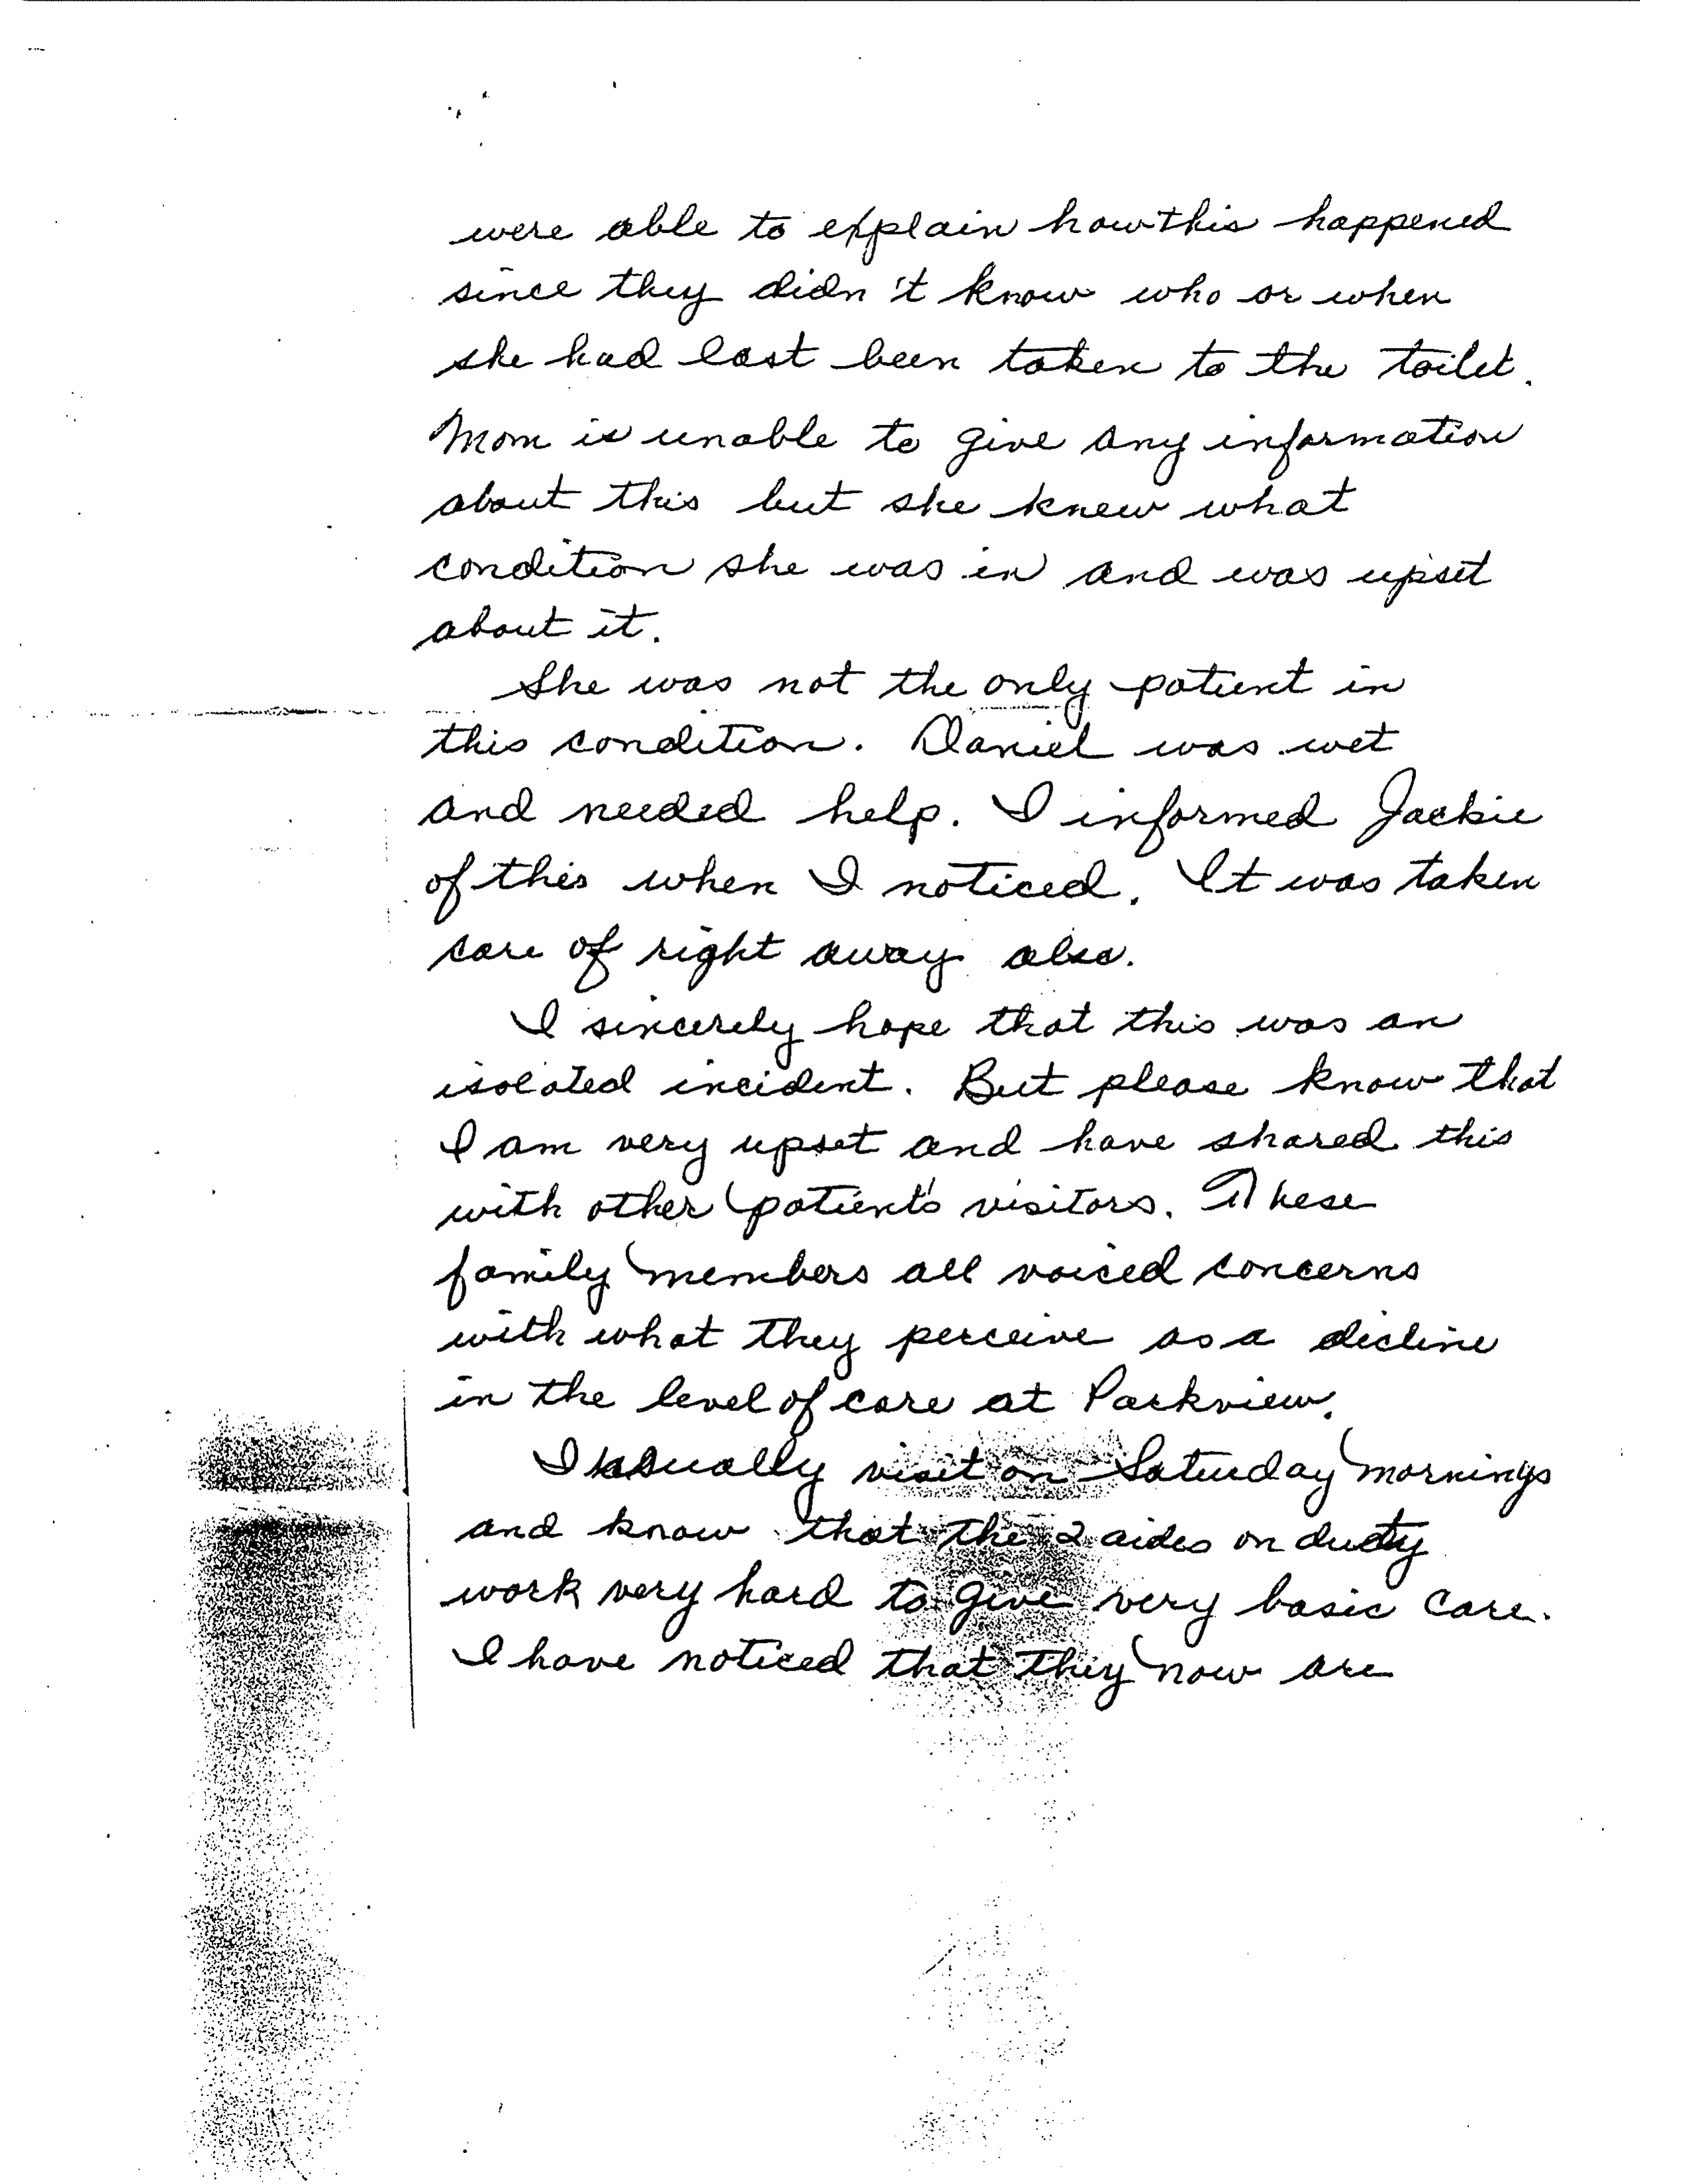 were able to explain how this happened
since they didn't know who or when
she had last been taken to the toilet.
Mom is unable to give any information
about this but she knew what
condition she was in and was upset
about it.
She was not the only patient in
this condition. Daniel was wet
and needed help. I informed Jackie
of this when I noticed. It was taken
care of right away also.
I sincerely hope that this was an
isolated incident. But please know that
I am very upset and have shared this
with other patient's visitors. These
family members all voiced concerns
with what they perceive as a decline
in the level of care at Parkview.
I usually visit on Saturday mornings
and know that the 2 aides on duty
work very hard to give very basic care.
I have noticed that they now are